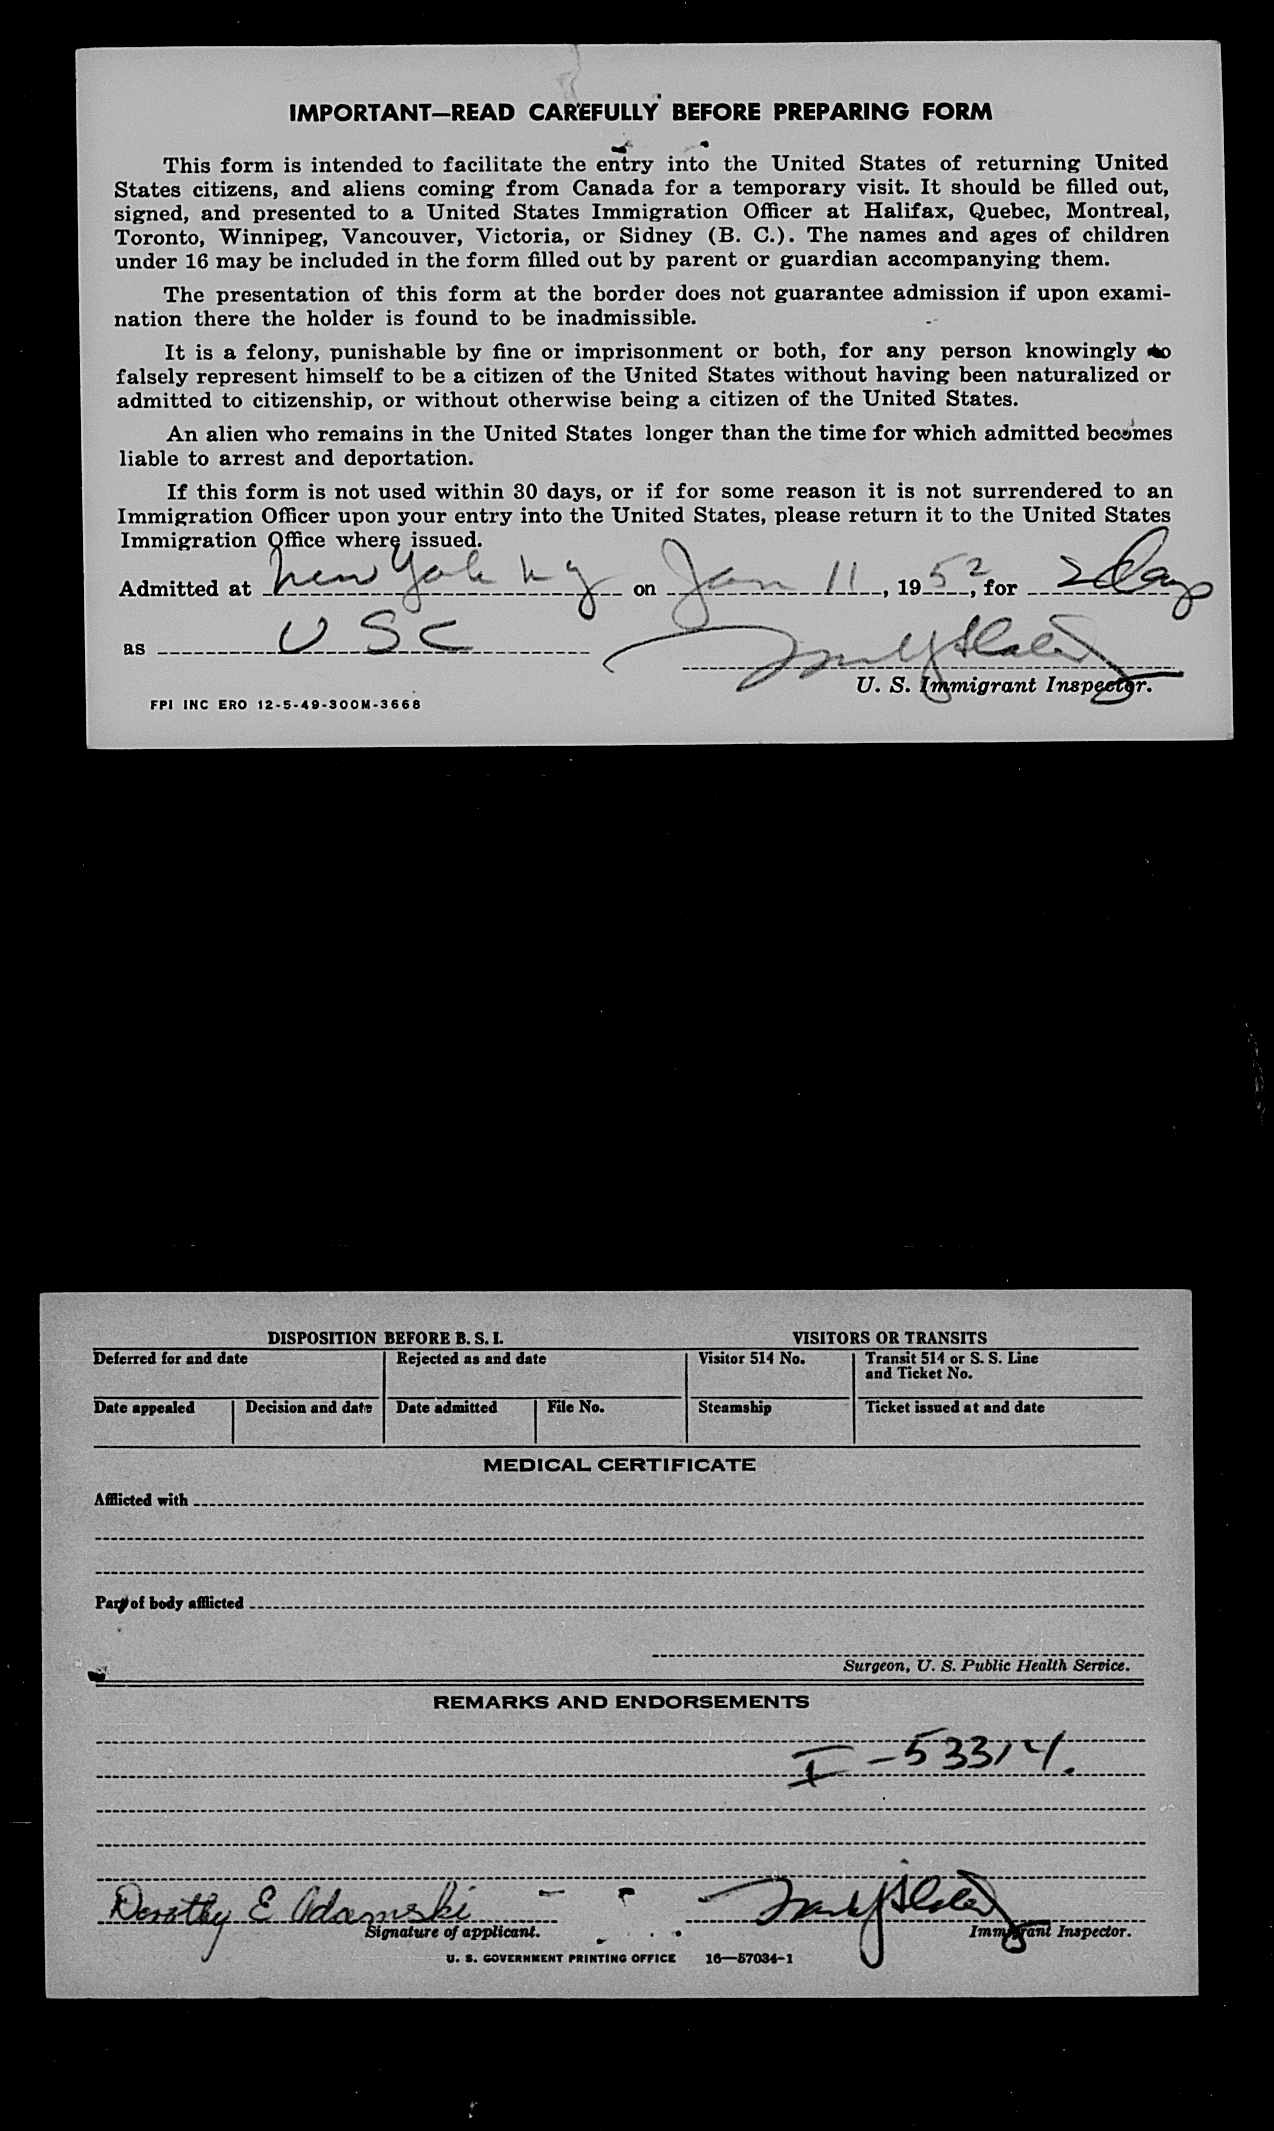 IMPORTANT—READ CAREFULLY BEFORE PREPARING FORM
This form is intended to facilitate the entry into the United States of returning United
States citizens, and aliens coming from Canada for a temporary visit. It should be filled out,
signed, and presented to a United States Immigration Officer at Halifax, Quebec, Montreal,
Toronto, Winnipeg, Vancouver, Victoria, or Sidney (B. C.). The names and ages of children
under 16 may be included in the form filled out by parent or guardian accompanying them.
The presentation of this form at the border does not guarantee admission if upon exami-
nation there the holder is found to be inadmissible.
It is a felony, punishable by fine or imprisonment or both, for any person knowingly to
falsely represent himself to be a citizen of the United States without having been naturalized or
admitted to citizenship, or without otherwise being a citizen of the United States.
An alien who remains in the United States longer than the time for which admitted becomes
liable to arrest and deportation.
If this form is not used within 30 days, or if for some reason it is not surrendered to an
Immigration Officer upon your entry into the United States, please return it to the United States
Immigration Office where issued.
Admitted at New York NY on Jan 11, 1952, for 2 Days
as USC
U. S. Immigrant Inspector.
FPI INC ERO 12-5-49-300M-3668
DISPOSITION BEFORE B. S. I. VISITORS OR TRANSITS
Deferred for and date Rejected as and date Visitor 514 No. Transit 514 or S. S. Line
and Ticket No.
Date appealed Decision and date Date admitted File No. Steamship Ticket issued at and date
MEDICAL CERTIFICATE
Afflicted with
Part of body afflicted
Surgeon, U. S. Public Health Service.
REMARKS AND ENDORSEMENTS
I-53314.
Dorothy E Adamski
Signature of applicant. Immigrant Inspector.
U. S. GOVERNMENT PRINTING OFFICE 16—57034-1